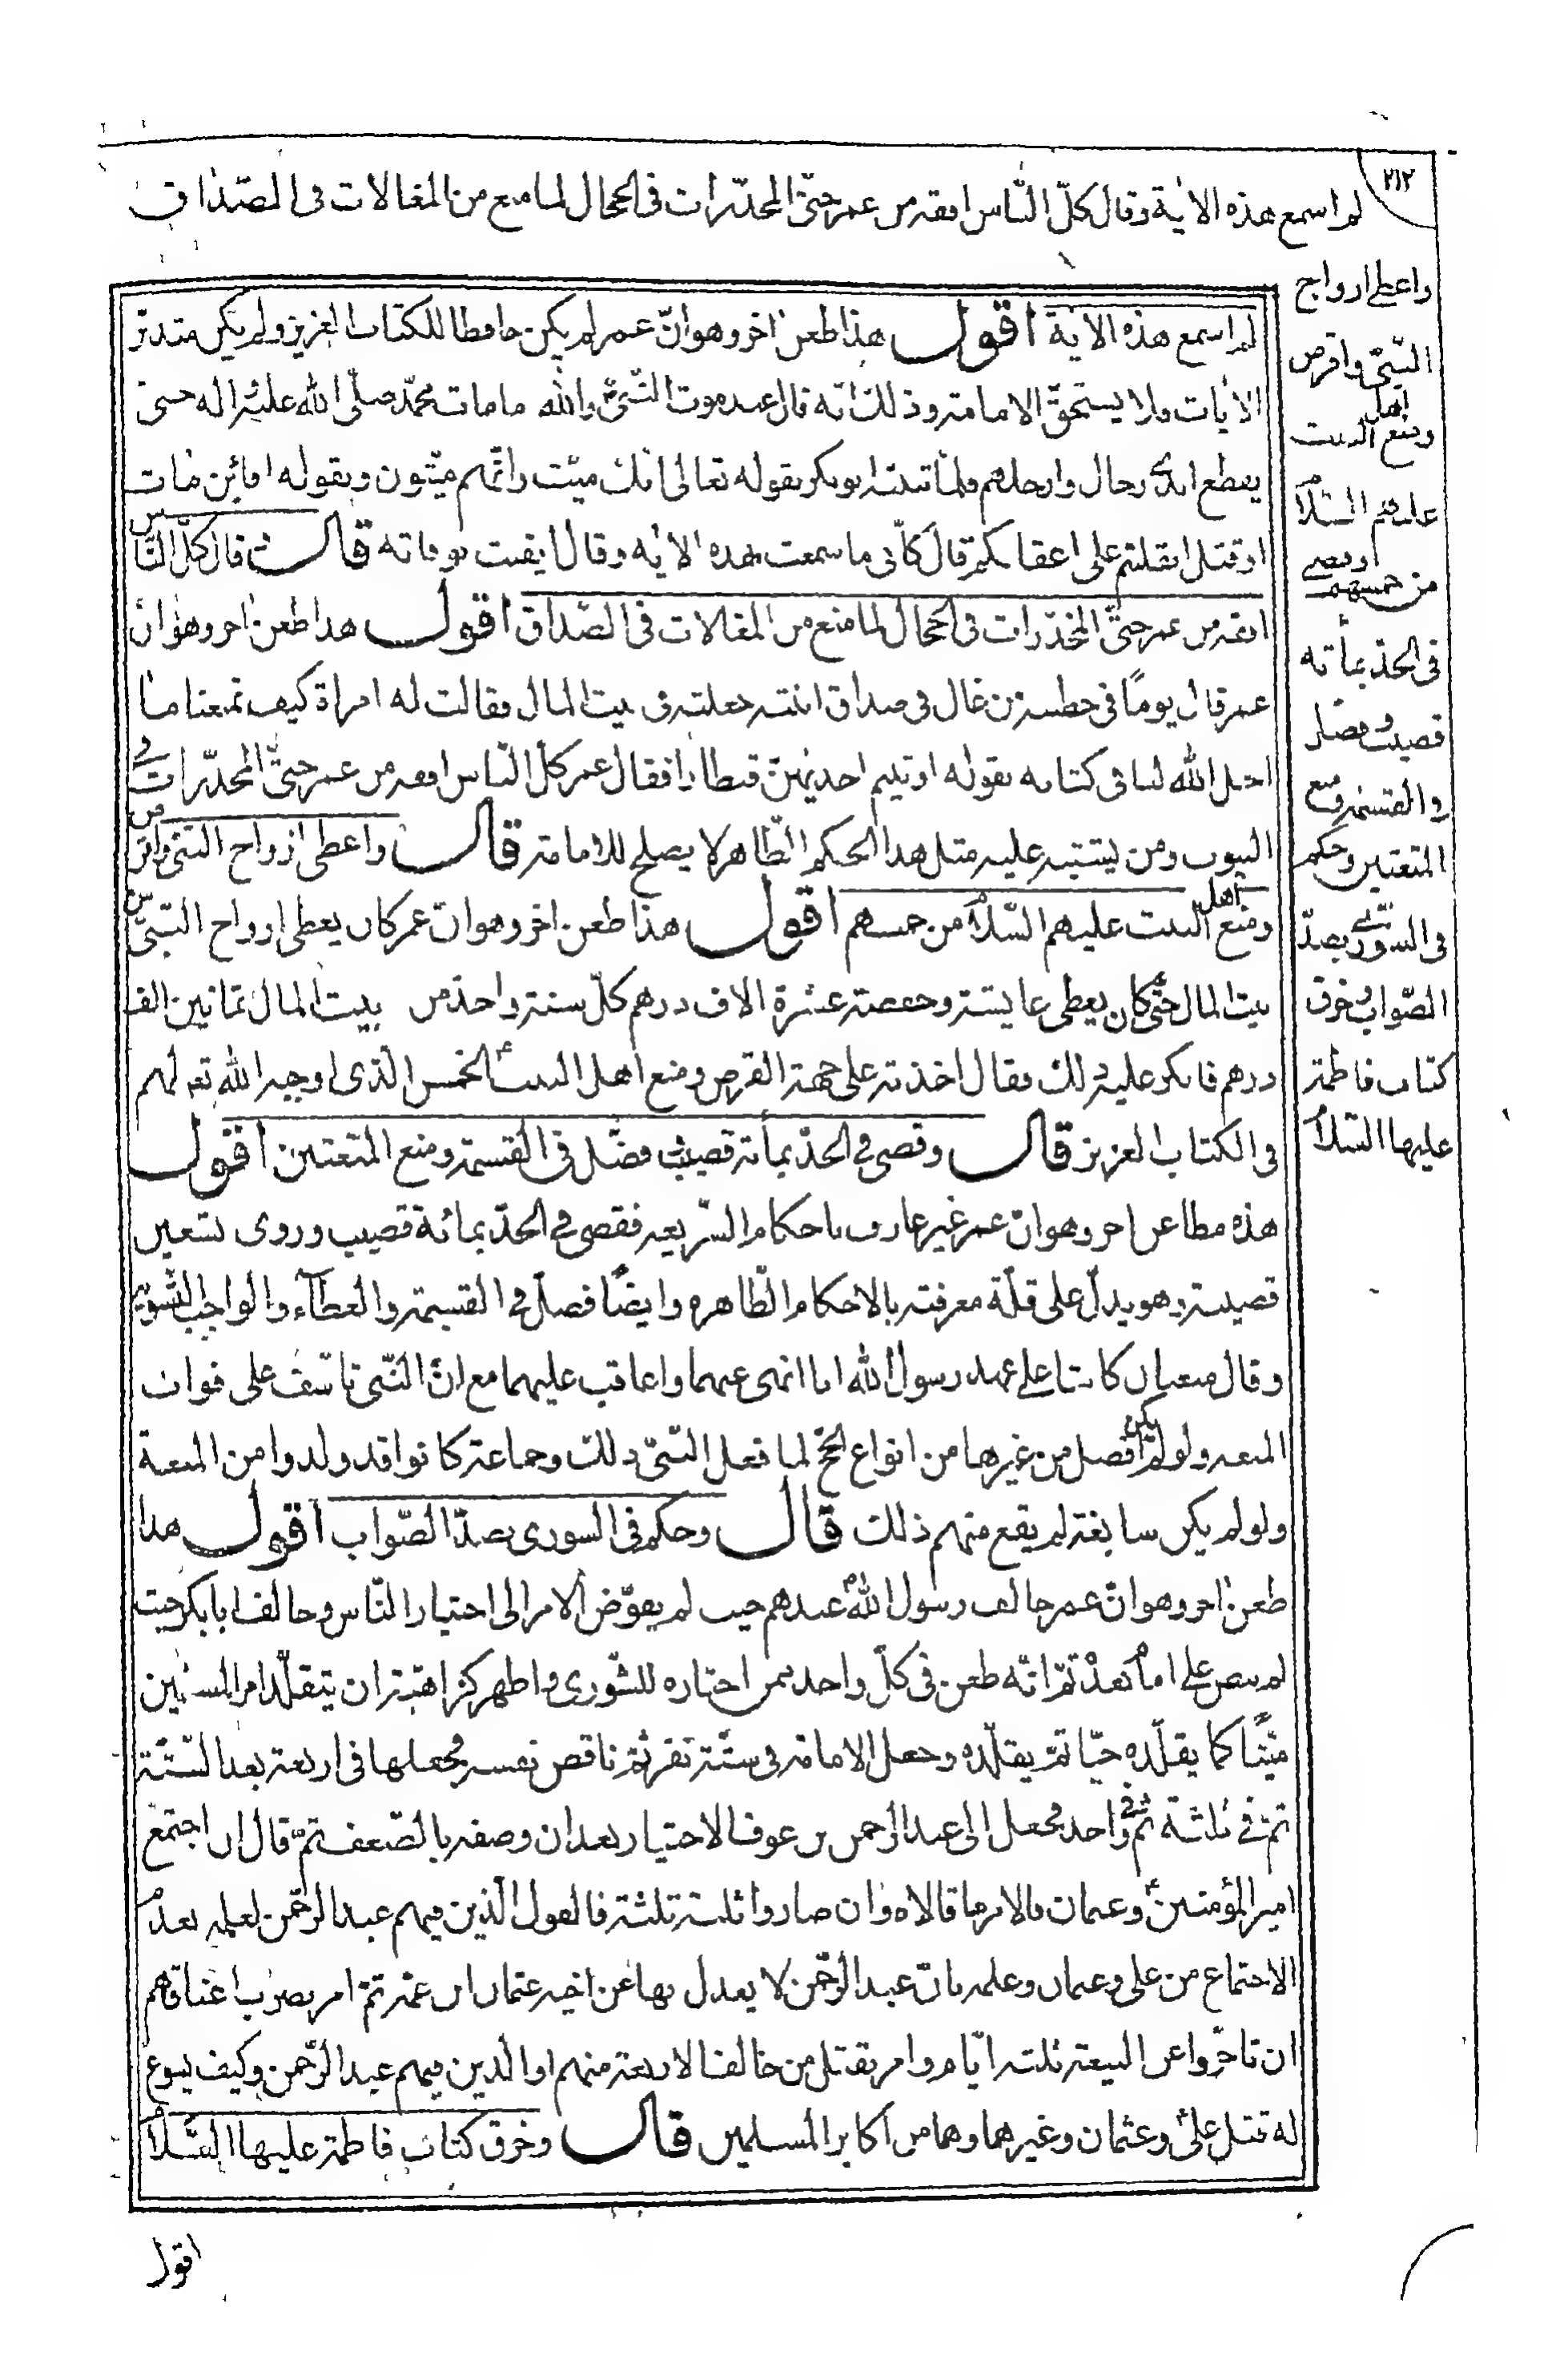 ٢١٢
لم اسمع هذه الاٰية وقال كلّ النّاس افقه من عمر حتّى المخدّرات فى الحجال لما منع من المغالات فى الصّداق
واعطى ازواج
النّبىّ واقرض
ومنع اهل البيت
عليهم السّلاٰم
من خمسهم وقضى
فى الحدّ بمأته
قضيب وفضّل
فى القسمة ومنع
المتعتين وحكم
فى الشّورىٰ بضدّ
الصّواب وخرق
كتاب فاطمة
عليها السّلاٰم
لم اسمع هذه الاٰية اقول هذا طعن اخر وهو انّ عمر لم يكن حافظا للكتاب العزيز ولم يكن متدبّر
الاٰيات فلا يستحقّ الامامة وذلك انّه قال عند موت النّبىّ والله ما مات محمّد صلّى الله عليه واله حتى
يقطع ايدى رجال وارجلهم فلمّا نبّهه ابو بكر بقوله تعالى انّك ميّت وانّهم ميّتون وبقوله افائن مٰات
او قتل انقلبتم على اعقابكم قال كأنّى ما سمعت بهذه الاٰيه وقال ايقنت بوفاته قال قال كلّ النّاس
افقه من عمر حتّى المخدّرات فى الحجال لما منع من المغالات فى الصّداق اقول هذا طعن اخر وهو انّ
عمر قال يومًا فى خطبته من غال فى صداق ابنته جعلته فى بيت المال فقالت له امراة كيف تمنعنا ما
احل الله لنا فى كتابه بقوله او تيتم احديهنّ قنطارا فقال عمر كلّ النّاس افقه من عمر حتّى المخدّرات فى
البيوت ومن يشتبه عليه مثل هذا الحكم الظّاهر لا يصلح للامامة قال واعطى ازواج النّبىّ واقرض
ومنع اهل البيت عليهم السّلاٰم من خمسهم اقول هذا طعن اخر وهو انّ عمر كان يعطى ازواج النّبىّ من
بيت المال حتّى كان يعطى عايشة وحفصة عشرة الاف درهم كلّ سنة واخذ من بيت المال ثمانين الف
درهم فانكر عليه ذلك فقال اخذته على جهة القرض ومنع اهل البيت الخمس الّذى اوجبه الله تعه لهم
فى الكتاب العزيز قال وقضى فى الحدّ بمأته قضيب وفضّل فى القسمة ومنع المتعتين اقول
هذه مطاعن اخر وهو انّ عمر غير عارف باحكام الشّريعه فقضى فى الحدّ بمائة قضيب وروى تسعين
قضيبة وهو يدلّ على قلّة معرفته بالاحكام الظّاهره وايضًا فضّل فى القسمة والعطآء والواجب التّسوية
وقال متعتان كانتا على عهد رسول الله انا انهى عنهما واعاقب عليهما مع انّ النّبىّ تاسّف على فوات
المتعه ولو لم يكن افضل من غيرها من انواع الحجّ لما فعل النّبىّ ذلك وجماعة كانوا قد ولدوا من المتعة
ولو لم يكن سايغة لم يقع منهم ذلك قال وحكم فى الشّورى بضدّ الصّواب اقول هذا
طعن اخر وهو انّ عمر خالف رسول الله عندهم حيث لم يفوّض الامر الى اختيار النّاس وخالف ابا بكر حيث
لم ينص على امام بعده ثمّ انّه طعن فى كلّ واحد ممن اختاره للشّورى واظهر كراهته ان يتقلّد امر المسلمين
ميّتًا كما يقلّده حيّا ثمّ يقلّده وجعل الامامة فى ستّة نفر ثمّ ناقض نفسه فجعلها فى اربعة بعد السّتّة
ثمّ فى ثلثة ثمّ فى واحد فجعل الى عبد الرحمن بن عوف الاختيار بعد ان وصفه بالضّعف ثمّ قال ان اجتمع
امير المؤمنين وعثمان فالامر ما قالاه وان صاروا ثلثة ثلثة فالقول الّذين فيهم عبد الرّحمن لعلمه بعدم
الاجتماع من علىّ وعثمان وعلمه بانّ عبد الرّحمن لا يعدل بها عن اخيه عثمان ابن عمّه ثمّ امر بضرب اعناقهم
ان تاخّروا عن البيعة ثلثه ايّام وامر بقتل من خالف الاربعة منهم او الّذين فيهم عبد الرّحمن وكيف يسوغ
له قتل علىّ وعثمان وغيرهما وهما من اكابر المسلمين قال وخرق كتاب فاطمة عليها السّلاٰم
اقول